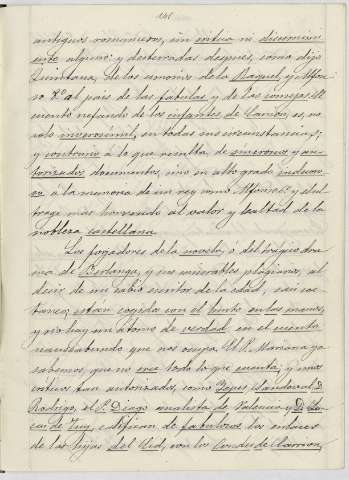 141
antiguos romanceros, sin crítica ni discernimi-
ento alguno: y desterradas después, como dijo
Quintana, de los amores de la Raquel, y Alfon-
so 8º al país de las fábulas y de las consejas. El
cuento nefando de los infantes de Carrión, es, no
solo inverosimil, en todas sus circunstancias,
y contrario á lo que resulta de sincronos y au-
torizados documentos, sino en alto grado indecoro-
so á la memoria de un rey como Alfonso 6º y el ul-
trage más horrendo al valor y lealtad de la
nobleza castellana.
Los forjadores de la novela, ó del trágico dra-
ma de Berlanga, y sus miserables plagiarios, al
decir de un sabio escritor de la edad,
tanea, están cogidos con el hurto en las manos,
y no hay un átomo de verdad en el cuento
nauseabundo que nos ocupa. El P. Mariana ya
sabemos, que no cree todo lo que cuenta; y unos
críticos tan autorizados, como Yepes, Sandoval, D.
Rodrigo, el P. Diago analista de Valencia y D. Lu-
cas de Tuy, califican de fabulosos los enlaces
de las hijas del Cid, con los Condes de Carrion,